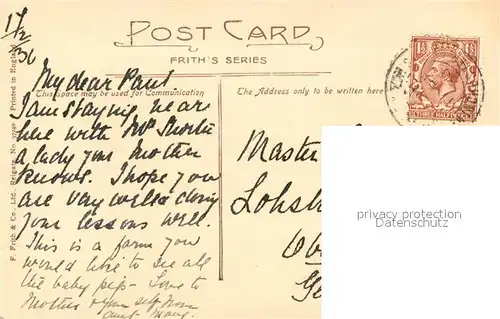 17/2/36
POST CARD
FRITH'S SERIES
This Space may be used for Communication
The Address only to be written here
F. Frith & Co., Ltd., Reigate. Printed in England
My dear Paul
I am staying near
here with Mrs
a lady your Mother
knows. I hope you
are very well & doing
your lessons well.
This is a farm you
would like to see all
the baby pigs - Love to
Mother & yourself from
aunt Mary.
Master
THREE HALFPENCE
privacy protection
Datenschutz